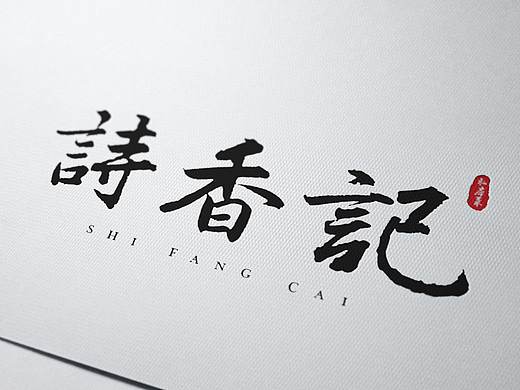 詩香記
SHI FANG CAI
私房菜